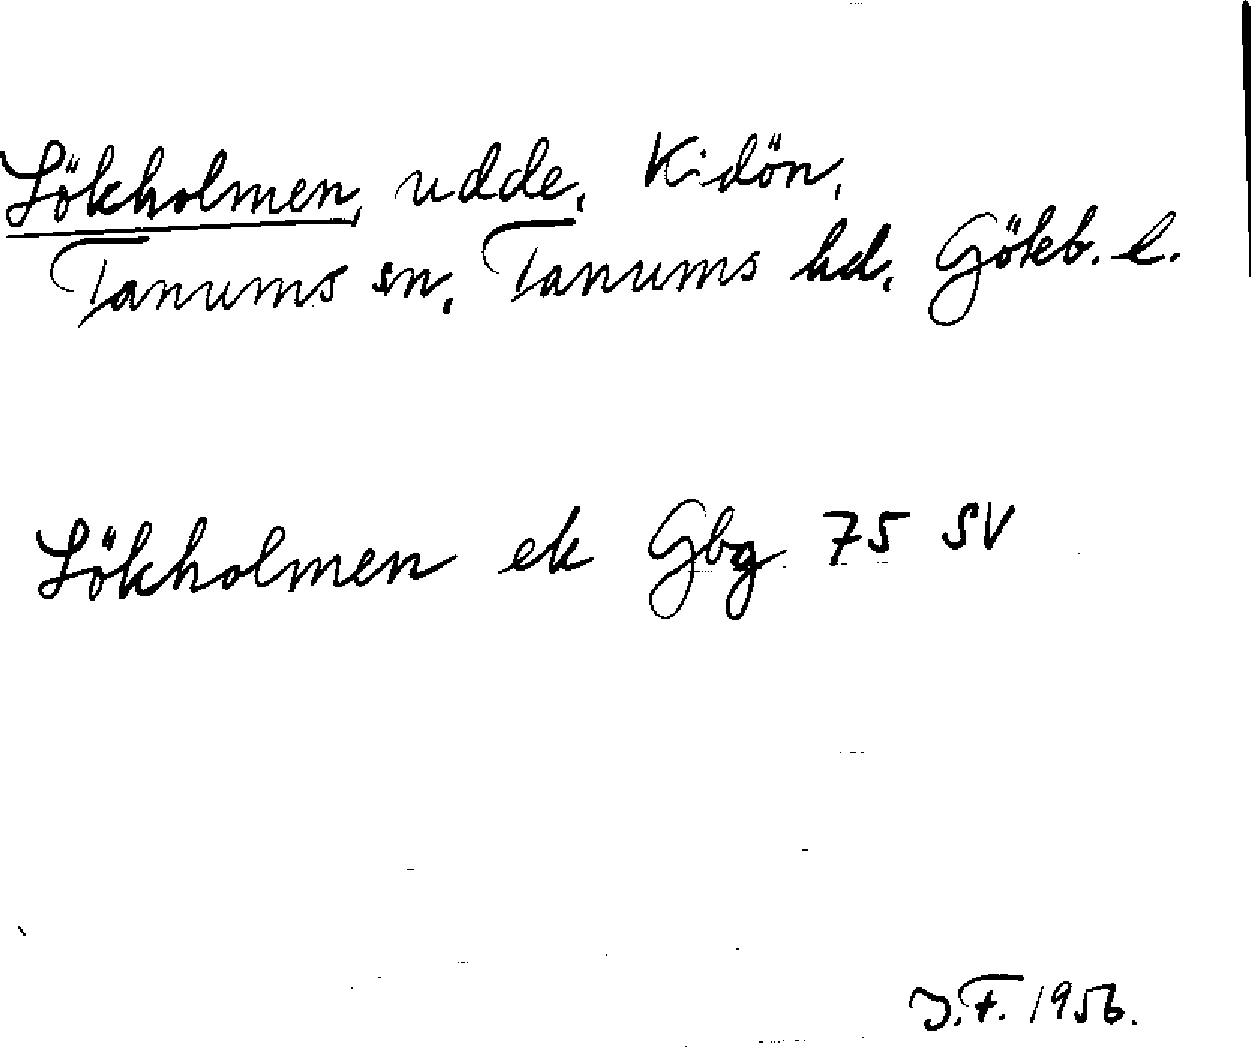 Lökholmen, udde, Kidön,
Tanums sn, Tanums hd, Göteb. l.
Lökholmen ek Gbg 75 SV
J.F. 1956.